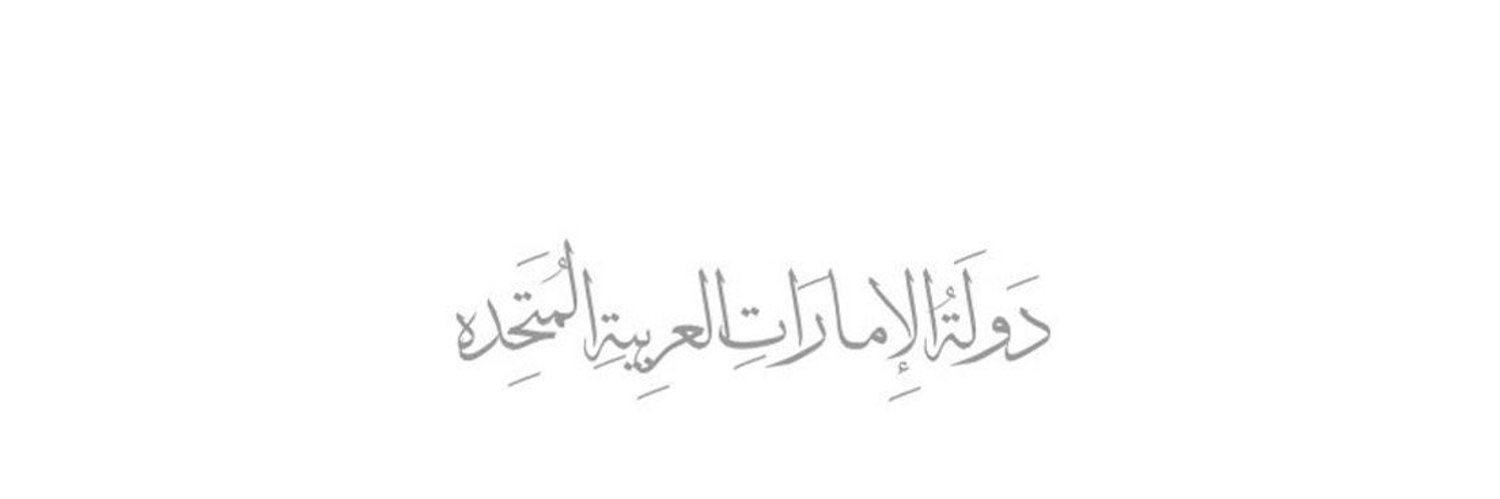 دَولَةُ الإِمارَاتِ العربِيةِ المُتَحِده